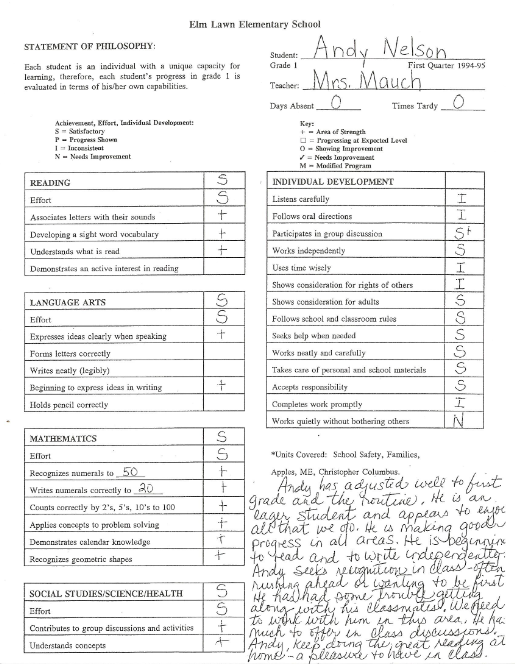 Elm Lawn Elementary School
STATEMENT OF PHILOSOPHY:
Each student is an individual with a unique capacity for
learning, therefore, each student's progress in grade 1 is
evaluated in terms of his/her own capabilities.
Student: Andy Nelson
Grade 1 First Quarter 1994-95
Teacher: Mrs. Mauch
Days Absent 0 Times Tardy 0
Achievement, Effort, Individual Development:
S = Satisfactory
P = Progress Shown
I = Inconsistent
N = Needs Improvement
Key:
+ = Area of Strength
□ = Progressing at Expected Level
O = Showing Improvement
✓ = Needs Improvement
M = Modified Program
READING S
Effort S
Associates letters with their sounds +
Developing a sight word vocabulary +
Understands what is read +
Demonstrates an active interest in reading
LANGUAGE ARTS S
Effort S
Expresses ideas clearly when speaking +
Forms letters correctly
Writes neatly (legibly)
Beginning to express ideas in writing +
Holds pencil correctly
MATHEMATICS S
Effort S
Recognizes numerals to 50 +
Writes numerals correctly to 20 +
Counts correctly by 2's, 5's, 10's to 100 +
Applies concepts to problem solving +
Demonstrates calendar knowledge +
Recognizes geometric shapes +
SOCIAL STUDIES/SCIENCE/HEALTH S
Effort S
Contributes to group discussions and activities +
Understands concepts +
INDIVIDUAL DEVELOPMENT
Listens carefully I
Follows oral directions I
Participates in group discussion S+
Works independently S
Uses time wisely I
Shows consideration for rights of others I
Shows consideration for adults S
Follows school and classroom rules S
Seeks help when needed S
Works neatly and carefully S
Takes care of personal and school materials S
Accepts responsibility S
Completes work promptly I
Works quietly without bothering others N
*Units Covered: School Safety, Families,
Apples, ME, Christopher Columbus.
Andy has adjusted well to first
grade and the routine. He is an
eager student and appears to enjoy
all that we do. He is making good
progress in all areas. He is beginning
to read and to write independently.
Andy seeks recognition in class - often
rushing ahead or wanting to be first.
He has had some trouble getting
along with his classmates. We need
to work with him in this area. He has
much to offer in class discussions.
Andy, keep doing the great reading at
home - a pleasure to have in class.